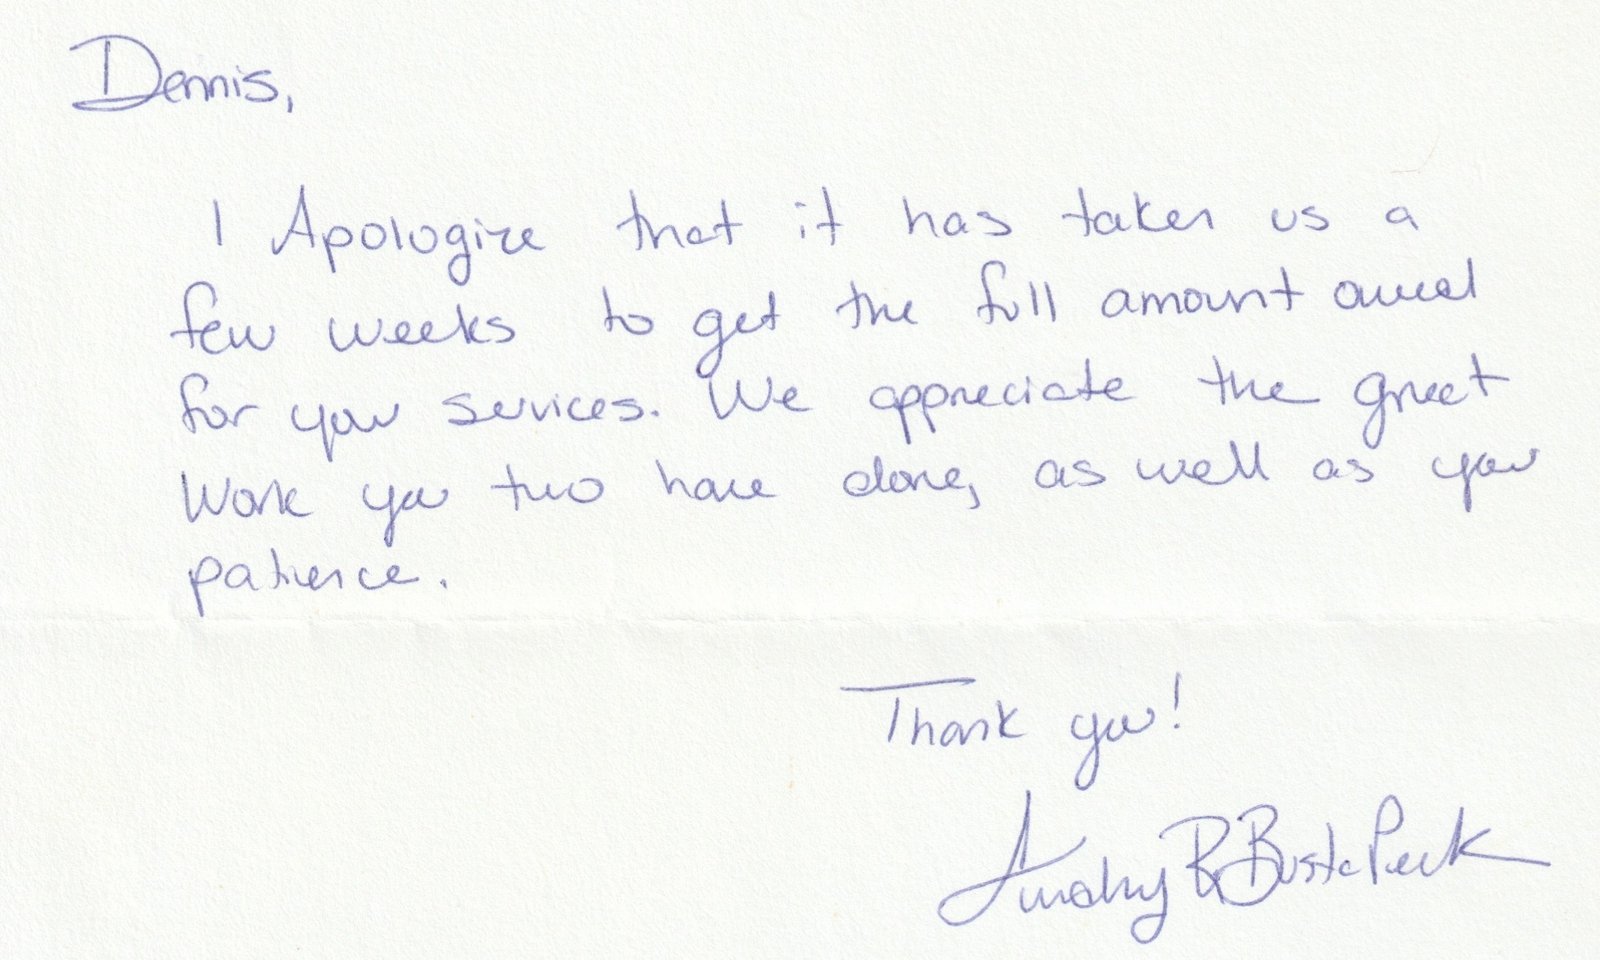 Dennis,
I Apologize that it has taken us a
few weeks to get the full amount owed
for your services. We appreciate the great
Work you two have done, as well as your
patience.
Thank you!
Audrey B Buste Peck